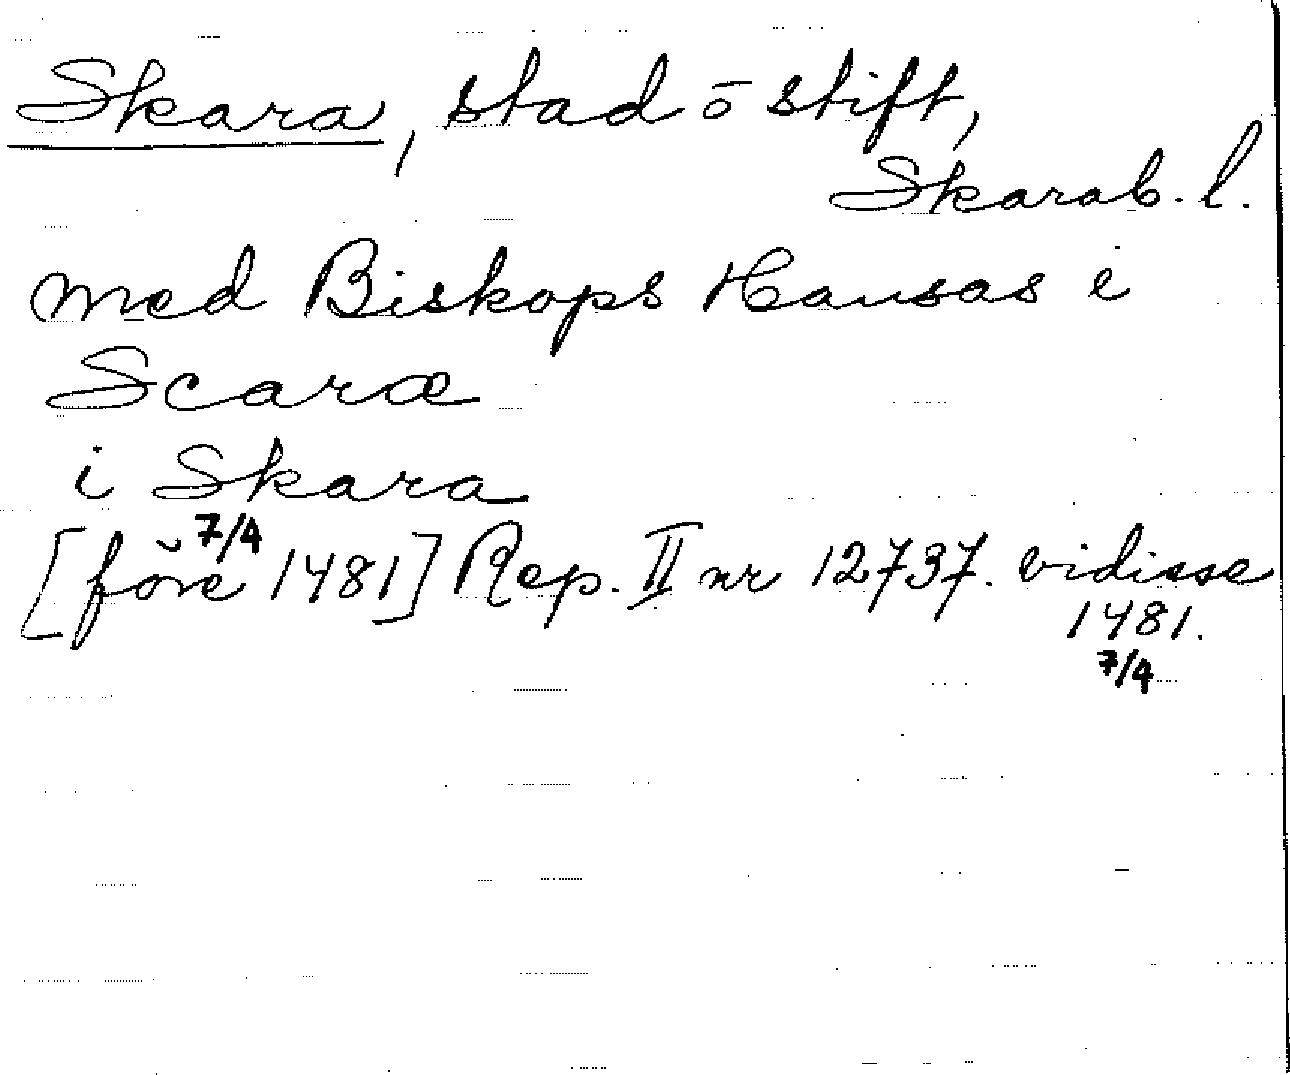 Skara, stad ō stift,
Skarab. l.
med Biskops Hansas i
Scaræ
i Skara
[före 7/4 1481] Rep. II nr 12737. vidisse
1481.
7/4